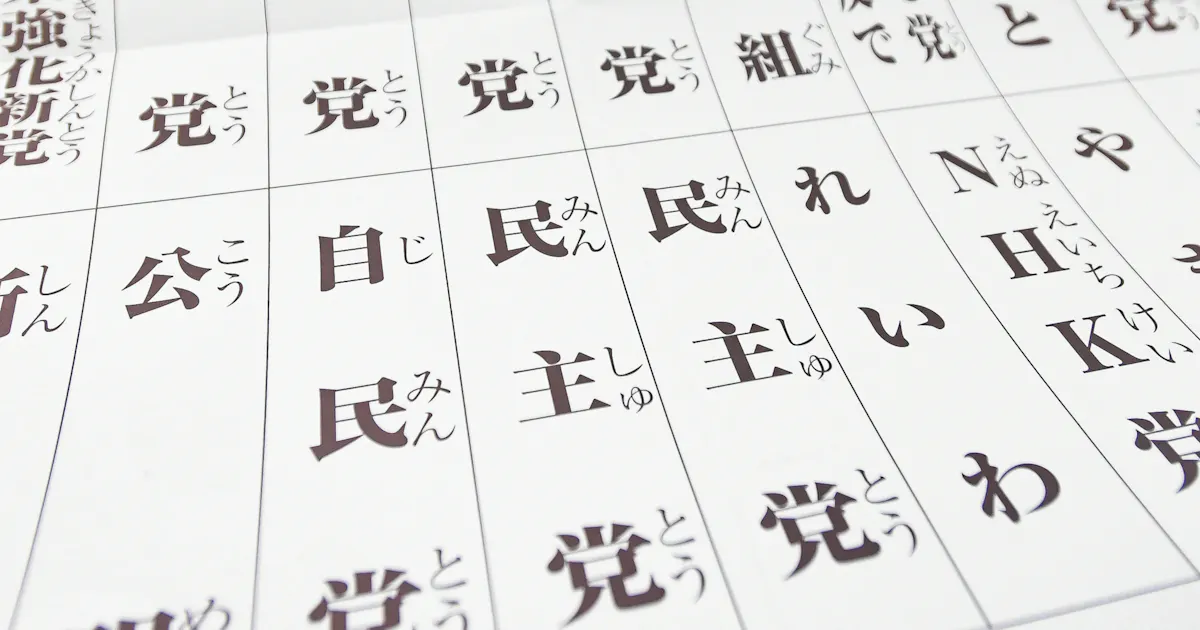 党
と
で党
とう
組
ぐみ
党
とう
党
とう
党
とう
党
とう
強化新党
きょうかしんとう
や
NHK党
えぬえいちけい
れいわ
民主党
みんしゅとう
民主党
みんしゅとう
自民党
じみんとう
公
こう
新
しん